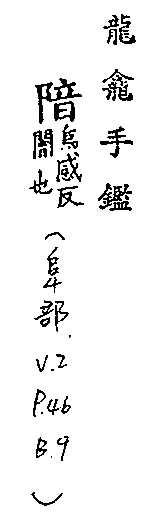 龍龕手鑑
䧄烏感反
闇也
(阜部.
V.2
P.46
B.9
)